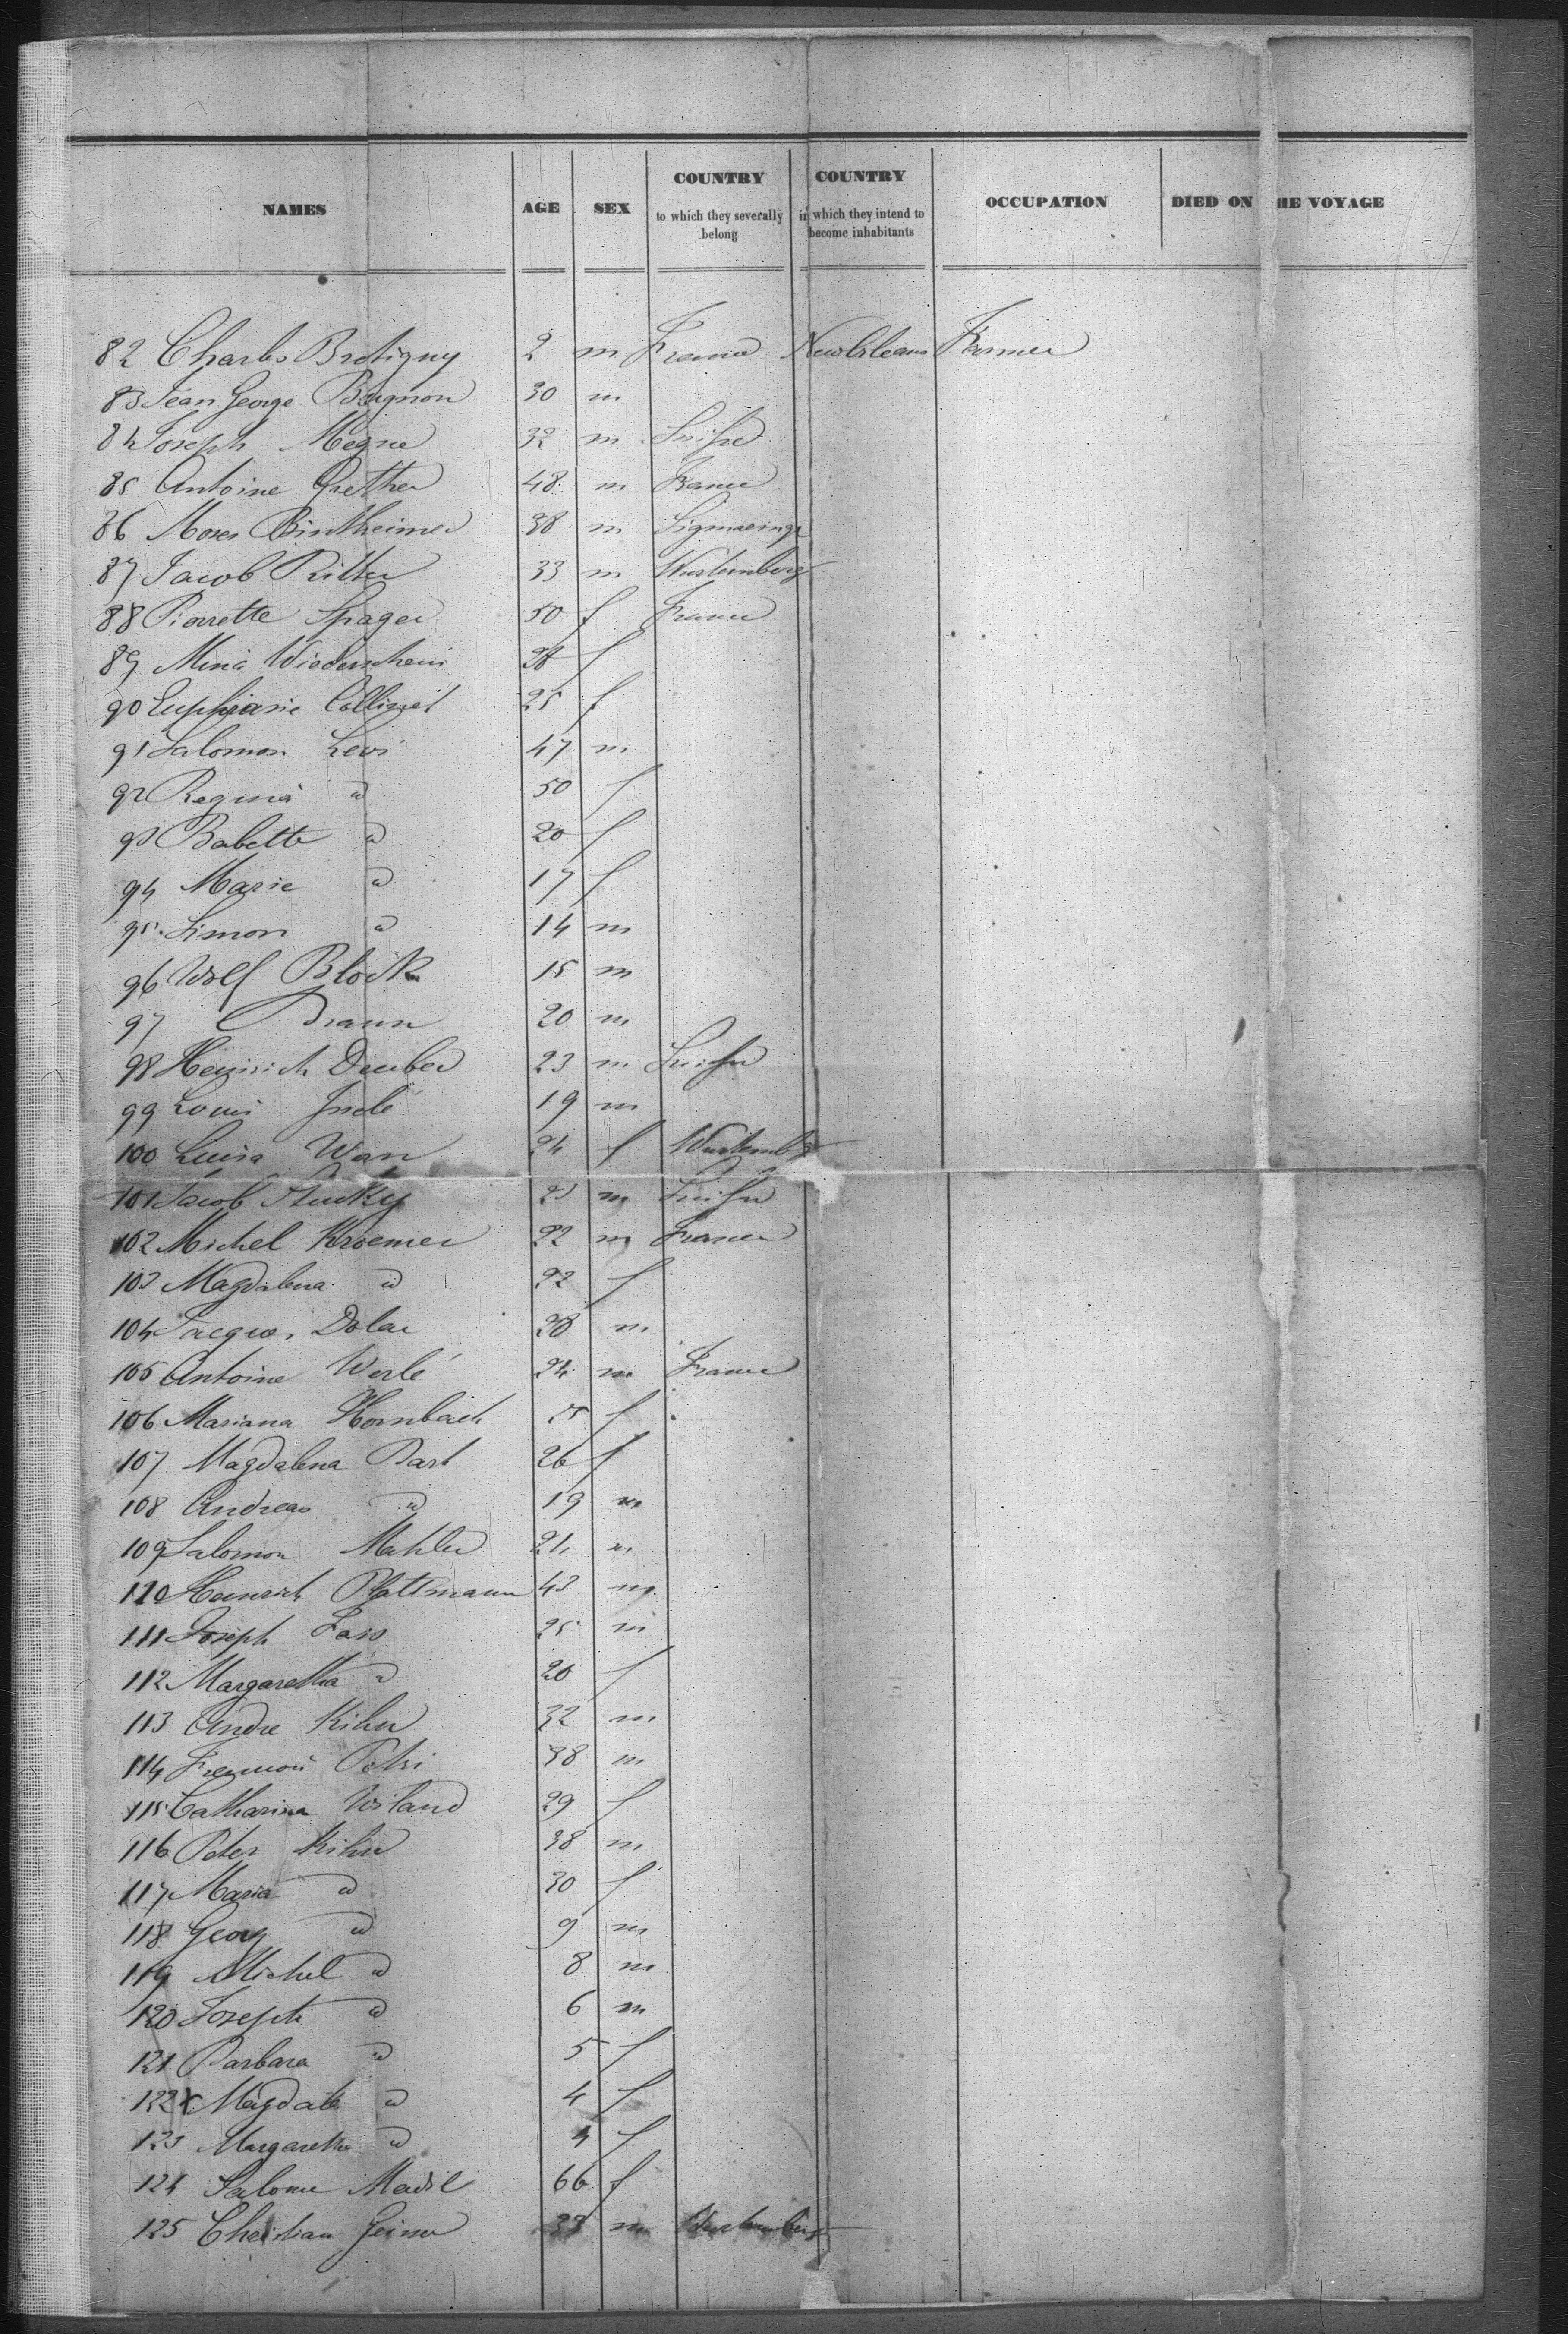 NAMES AGE SEX COUNTRY to which they severally belong COUNTRY in which they intend to become inhabitants OCCUPATION DIED ON HE VOYAGE
82 Charles Bretigny 2 m France New Orleans Farmer
83 Jean George Bugnon 30 m
84 Joseph Megne 32 m Suisse
85 Antoine Grether 48 m France
86 Moses Bintheimer 38 m Sigmaringe
87 Jacob Ritter 33 m Wurtemberg
88 Pierrette Spager 50 f France
89 Mina Wiedersheim f
90 Euphrasie Collinet 25 f
91 Salomon Levi 47 m
92 Regina d 50 f
93 Babette d 20 f
94 Marie d 17 f
95 Simon d 14 m
96 Wolf Block 15 m
97 Braun 20 m
98 Heinrich Deuber 23 m Suisse
99 Louis 19 m
100 Luisa Wan 24 f Wurtembg
101 Jacob Stucky 23 m Suisse
102 Michel Kroemer 22 m France
103 Magdalena d 22 f
104 Jacques Dolae 28 m
105 Antoine Werlé 24 m France
106 Mariana Hornbach f
107 Magdalena Bart 26 f
108 Andreas d 19 m
109 Salomon Mahler 21 m
110 Heinrich Plattmann 43 m
111 Joseph Lais 25 m
112 Margaretha d 20 f
113 Andre Kihn 32 m
114 Petri 38 m
115 Catharina Wiland 29 f
116 Peter Kihn 38 m
117 Maria d 30 f
118 Georg d 9 m
119 Michel d 8 m
120 Joseph d 6 m
121 Barbara d 5 f
122 Magdal d 4 f
123 Margaretha d 4 f
124 Salome Madil 66 f
125 Christian Geiser 33 m Wurtemberg